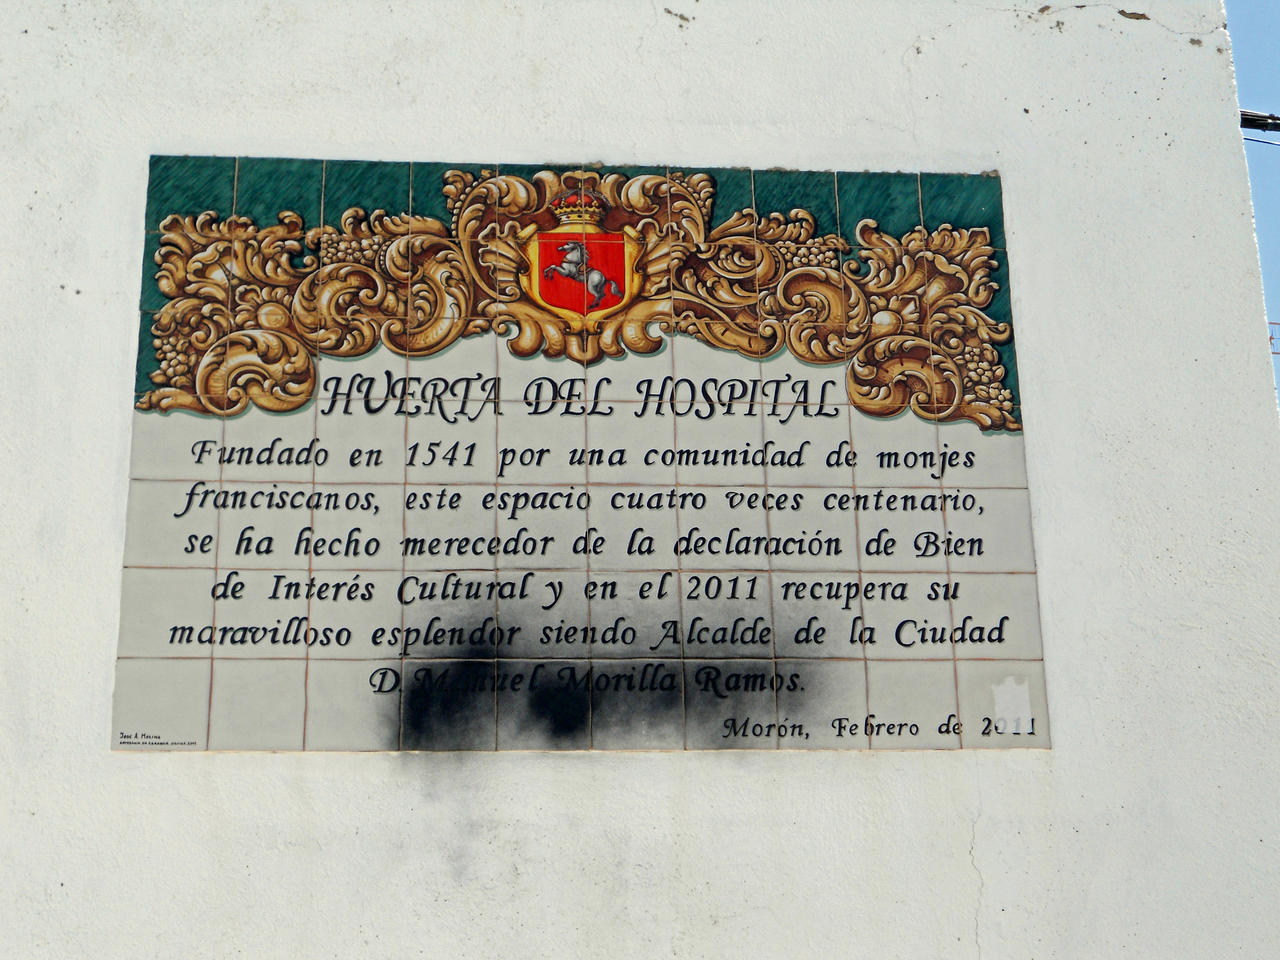 HUERTA DEL HOSPITAL
Fundado en 1541 por una comunidad de monjes
franciscanos, este espacio cuatro veces centenario,
se ha hecho merecedor de la declaración de Bien
de Interés Cultural y en el 2011 recupera su
maravilloso esplendor siendo Alcalde de la Ciudad
D. Manuel Morilla Ramos.
Morón, Febrero de 2011